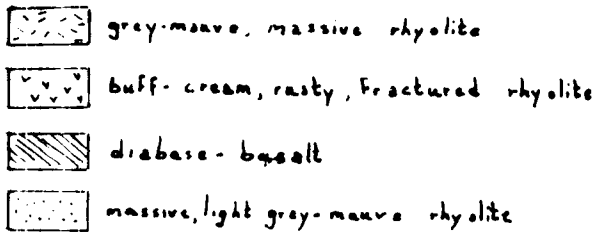 grey-mauve, massive rhyolite
buff-cream, rusty, Fractured rhyolite
diabase-basalt
massive, light grey-mauve rhyolite